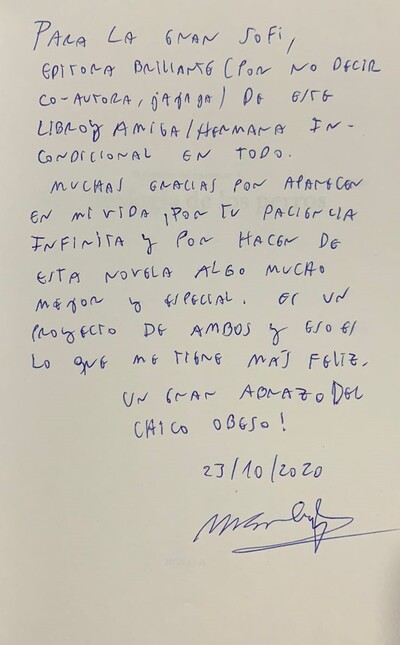 PARA LA GRAN SOFI,
EDITORA BRILLANTE (POR NO DECIR
CO-AUTORA, JAJAJA) DE ESTE
LIBRO Y AMIGA/HERMANA IN-
CONDICIONAL EN TODO.
MUCHAS GRACIAS POR APARECER
EN MI VIDA, POR TU PACIENCIA
INFINITA Y POR HACER DE
ESTA NOVELA ALGO MUCHO
MEJOR Y ESPECIAL. ES UN
PROYECTO DE AMBOS Y ESO ES
LO QUE ME TIENE MÁS FELIZ.
UN GRAN ABRAZO DEL
CHICO OBESO!
23/10/2020